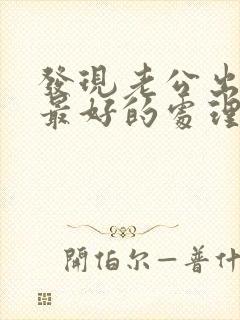 發現老公出
最好的處理
開伯尔—普什